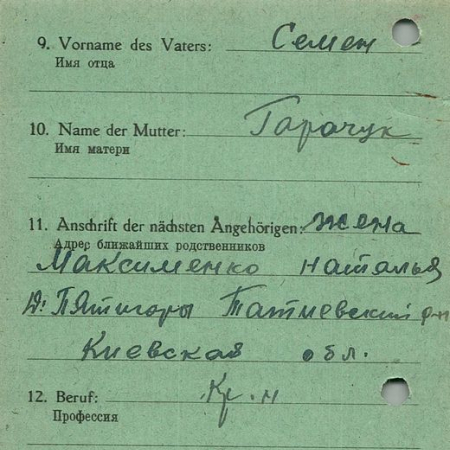 9. Vorname des Vaters: Семен
Имя отца
10. Name der Mutter: Гарачук
Имя матери
11. Anschrift der nächsten Angehörigen: жена
Адрес ближайших родственников
Максименко Наталья
д. Пятигоры Татиевский р-н
Киевская обл.
12. Beruf: Кр-н
Профессия